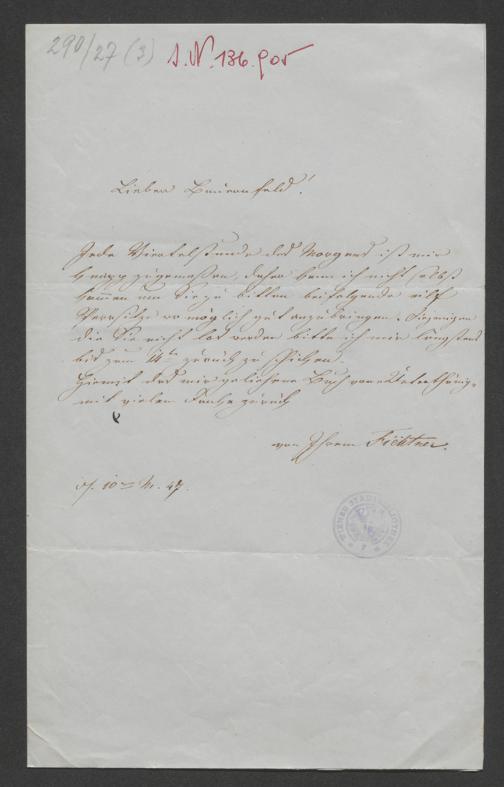 290/27 (3) J. N. 136.905
Lieber Bauernfeld!
Jede Viertelstunde des Morgens ist mir
knapp zugemessen, daher kann ich nicht selbst
kommen um Sie zu bitten beifolgende eilf
Sperrsitze wo möglich gut anzubringen. Diejenigen
die Sie nicht los werden bitte ich mir längstens
bis zum 14ten zurück zu schicken.
Hiemit das mir geliehene Buch von
mit vielem Danke zurück
von Ihrem Fichtner.
10 47.
WIENER STADTBIBLIOTHEK